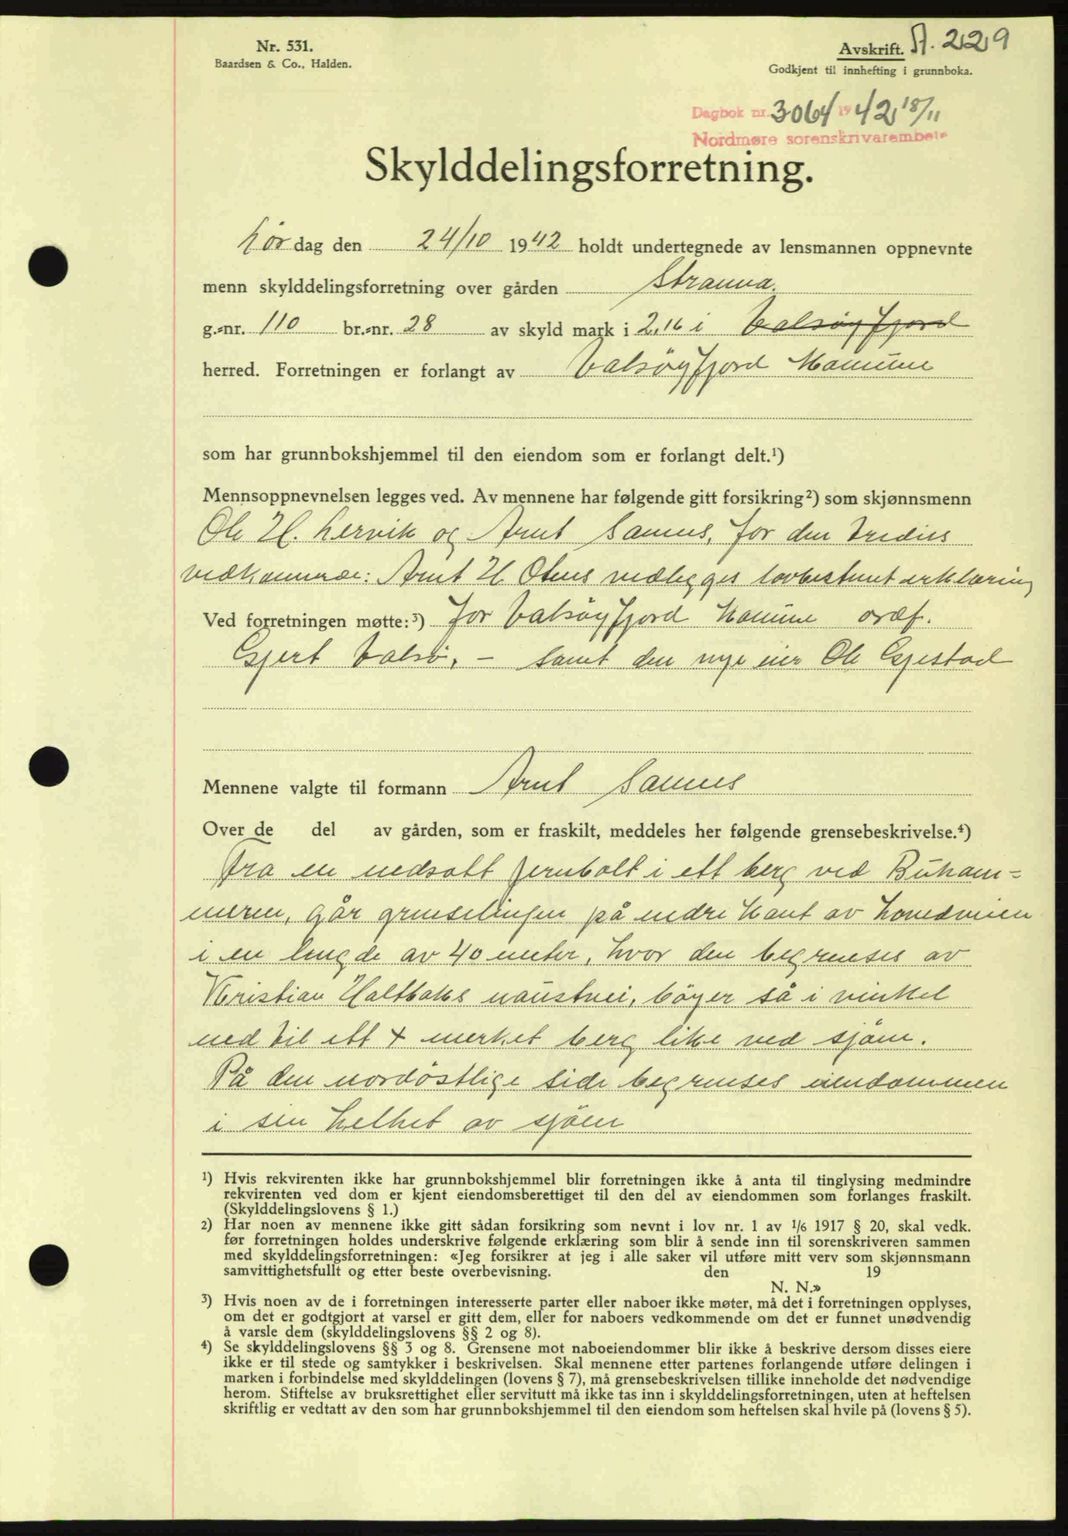 Nr. 531.
Baardsen & Co., Halden.
Avskrift. A. 229
Godkjent til innhefting i grunnboka.
Dagbok nr. 3064 1942 18/11
Nordmøre sorenskrivarembete
Skylddelingsforretning.
Lør dag den 24/10 1942 holdt undertegnede av lensmannen oppnevnte
menn skylddelingsforretning over gården Stranna.
g.-nr. 110 br.-nr. 28 av skyld mark i 2,16 i Valsøyfjord
herred. Forretningen er forlangt av Valsøyfjord Komune
som har grunnbokshjemmel til den eiendom som er forlangt delt.¹)
Mennsoppnevnelsen legges ved. Av mennene har følgende gitt forsikring²) som skjønnsmenn
Ole H. Lervik og Arnt Sannes, for den tredies
vedkomende: Arnt H Otnes vedlegges lovbestemt erklæring
Ved forretningen møtte:³) for Valsøyfjord Komune ordf.
Gjert Valsø, – samt den nye eier Ole Gjestad
Mennene valgte til formann Arnt Sannes
Over de del av gården, som er fraskilt, meddeles her følgende grensebeskrivelse.⁴)
Fra en nedsatt jernbolt i ett berg ved Buham=
meren, går grenselinjen på nedre kant av hovedveien
i en lengde av 40 meter, hvor den begrenses av
Kristian Haltbaks naustvei, bøyer så i vinkel
ned til ett + merket berg like ved sjøen.
På den nordøstlige side begrenses eiendommen
i sin helhet av sjøen
¹) Hvis rekvirenten ikke har grunnbokshjemmel blir forretningen ikke å anta til tinglysing medmindre
rekvirenten ved dom er kjent eiendomsberettiget til den del av eiendommen som forlanges fraskilt.
(Skylddelingslovens § 1.)
²) Har noen av mennene ikke gitt sådan forsikring som nevnt i lov nr. 1 av 1/6 1917 § 20, skal vedk.
før forretningen holdes underskrive følgende erklæring som blir å sende inn til sorenskriveren sammen
med skylddelingsforretningen: «Jeg forsikrer at jeg i alle saker vil utføre mitt verv som skjønnsmann
samvittighetsfullt og etter beste overbevisning. den 19
N. N.»
³) Hvis noen av de i forretningen interesserte parter eller naboer ikke møter, må det i forretningen opplyses,
om det er godtgjort at varsel er gitt dem, eller for naboers vedkommende om det er funnet unødvendig
å varsle dem (skylddelingslovens §§ 2 og 8).
⁴) Se skylddelingslovens §§ 3 og 8. Grensene mot naboeiendommer blir ikke å beskrive dersom disses eiere
ikke er til stede og samtykker i beskrivelsen. Skal mennene etter partenes forlangende utføre delingen i
marken i forbindelse med skylddelingen (lovens § 7), må grensebeskrivelsen tillike inneholde det nødvendige
herom. Stiftelse av bruksrettighet eller servitutt må ikke tas inn i skylddelingsforretningen, uten at heftelsen
skriftlig er vedtatt av den som har grunnbokshjemmel til den eiendom som heftelsen skal hvile på (lovens § 5).